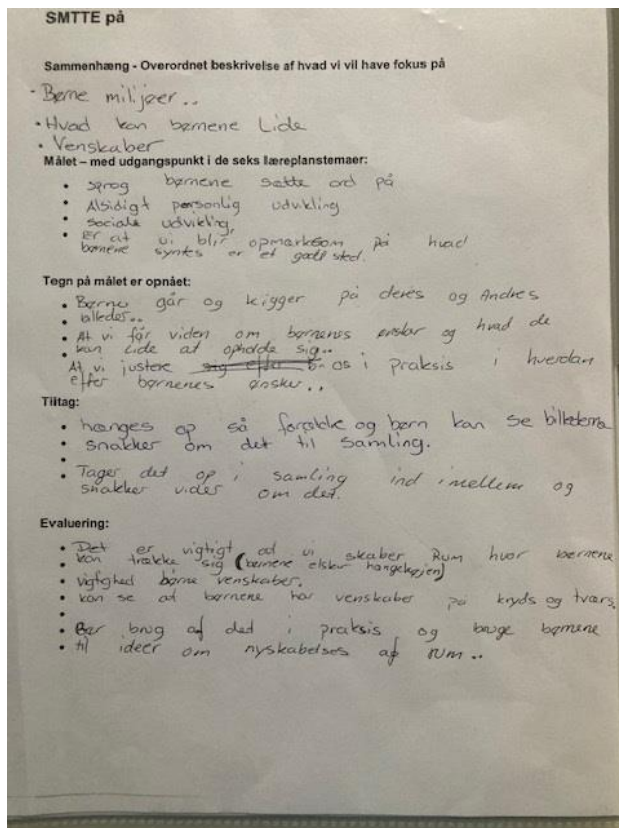 SMTTE på
Sammenhæng - Overordnet beskrivelse af hvad vi vil have fokus på
- Børne miljøer..
• Hvad kan børnene Lide
• Venskaber
Målet – med udgangspunkt i de seks læreplanstemaer:
• sprog børnene sætte ord på
• Alsidigt personlig udvikling
• sociale udvikling,
• Er at vi blir opmærksom på hvad
børnene syntes er et godt sted.
Tegn på målet er opnået:
• Børne går og kigger på deres og Andres
• billeder..
• At vi får viden om børnenes ønsker og hvad de
• kan Lide at opholde sig..
At vi justere sig efter os i praksis i hverdan
efter børnenes ønsker..
Tiltag:
• hænges op så forældre og børn kan se billederna
• snakker om det til samling.
•
• Tager det op i samling ind imellem og
snakker vider om det.
Evaluering:
• Det er vigtigt at vi skaber Rum hvor børnene
• kan trække sig (børnene elsker hængekøjen)
• vigtighed børne venskaber.
• kan se at børnene har venskaber på kryds og tværs.
•
• Gør brug af det i praksis og bruge børnene
• til ideer om nyskabelses af rum..